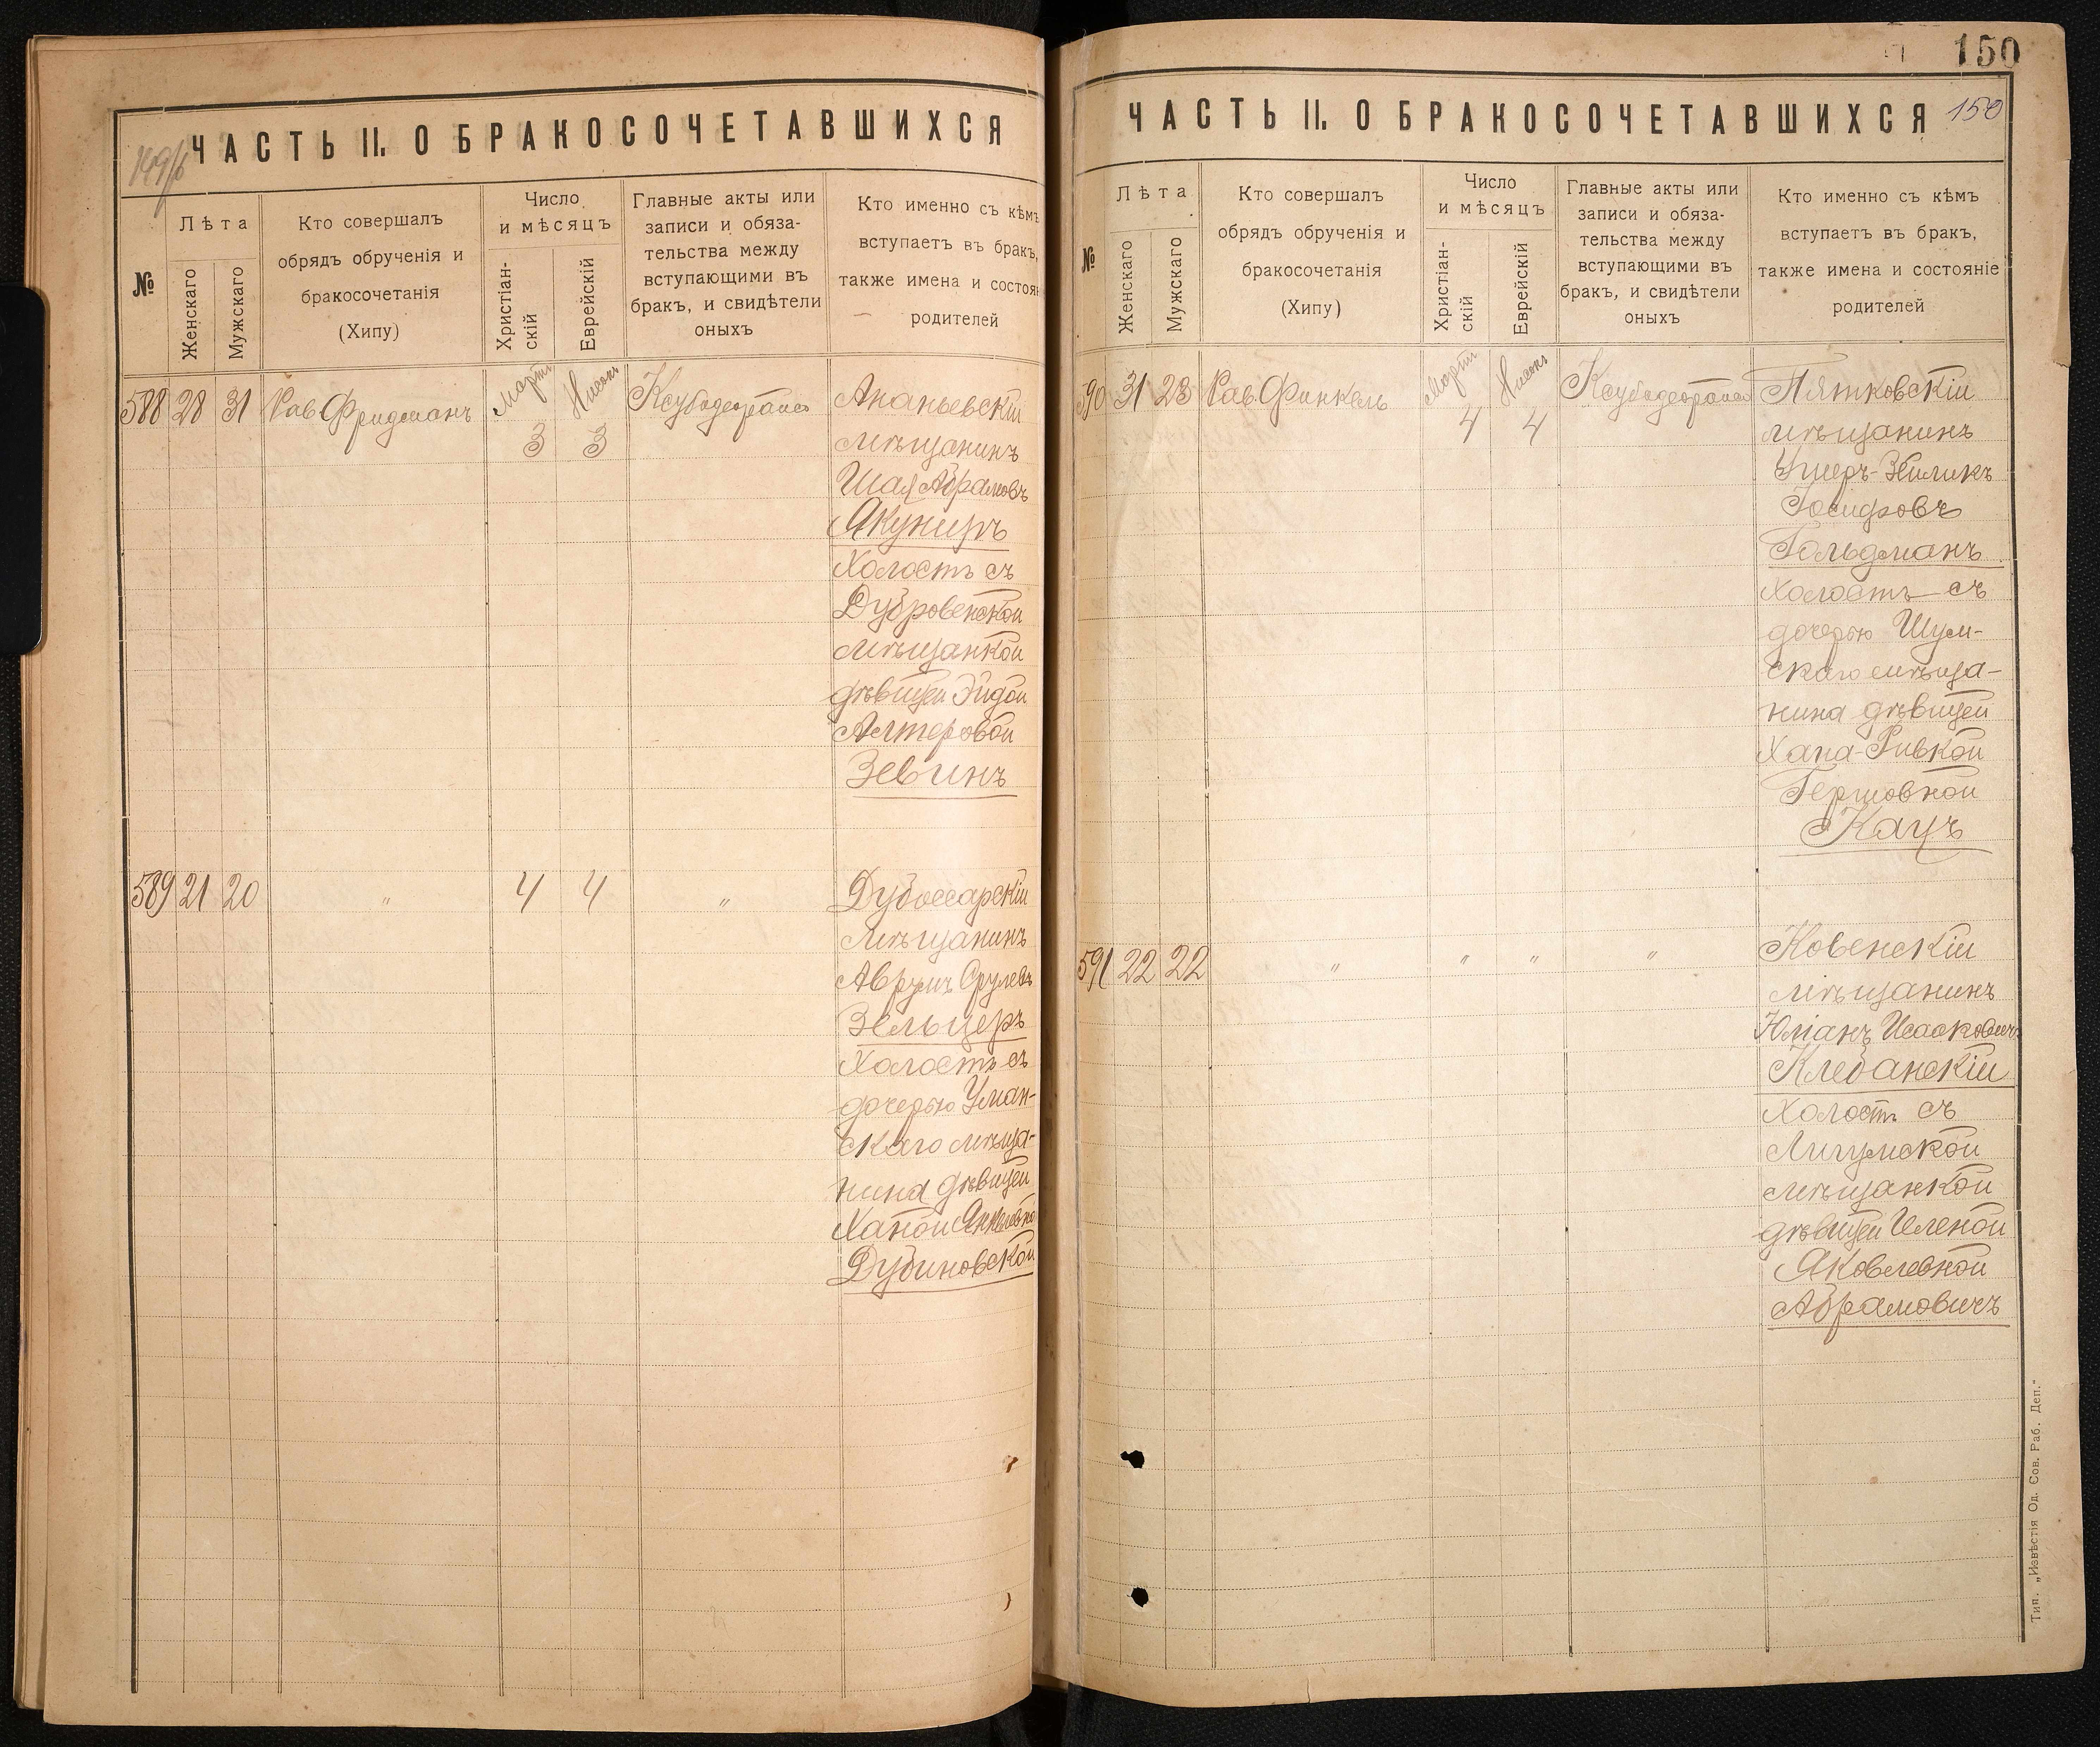 ЧАСТЬ II. О БРАКОСОЧЕТАВШИХСЯ
№
Лѣта
Женскаго
Мужскаго
Кто совершалъ
обрядъ обрученія и
бракосочетанія
(Хипу)
Число
и мѣсяцъ
Христіан-
скій
Еврейскій
Главные акты или
записи и обяза-
тельства между
вступающими въ
бракъ, и свидѣтели
оныхъ
Кто именно съ кѣмъ
вступаетъ въ бракъ,
также имена и состоян
родителей
588 28 31 Рав Фридманъ Мартъ Нисонъ
3 3
Ананьевскій
мѣщанинъ
Шая Абрамовъ
Якуниръ
Холостъ съ
Дубровенской
мѣщанкой
дѣвицей Эйдой
Алтеровой
Зевинъ
589 21 20 " 4 4 "
Дубоссарскій
мѣщанинъ
Аврумъ Срулевъ
Зельцеръ
Холостъ съ
дочерью Уман-
скаго мѣща-
нина дѣвицей
Ханой Янкелевно
Дубиновской
150
ЧАСТЬ II. О БРАКОСОЧЕТАВШИХСЯ 150
№
Лѣта
Женскаго
Мужскаго
Кто совершалъ
обрядъ обрученія и
бракосочетанія
(Хипу)
Число
и мѣсяцъ
Христіан-
скій
Еврейскій
Главные акты или
записи и обяза-
тельства между
вступающими въ
бракъ, и свидѣтели
оныхъ
Кто именно съ кѣмъ
вступаетъ въ бракъ,
также имена и состояніе
родителей
590 31 23 Рав. Финкель Мартъ Нисонъ
4 4
Пятковскій
мѣщанинъ
Ушеръ-Зеликъ
Іосифовъ
Гольдманъ
Холостъ съ
дочерью Шум-
скаго мѣща-
нина дѣвицей
Хана-Ривкой
Гершовной
Кацъ
591 22 22 " " " "
Ковенскій
мѣщанинъ
Юліанъ Исааковичъ
Клебанскій
Холостъ съ
Лигумской
мѣщанкой
дѣвицей Еленой
Яковлевной
Абрамовичъ
Тип. „Извѣстія Од. Сов. Раб. Деп."